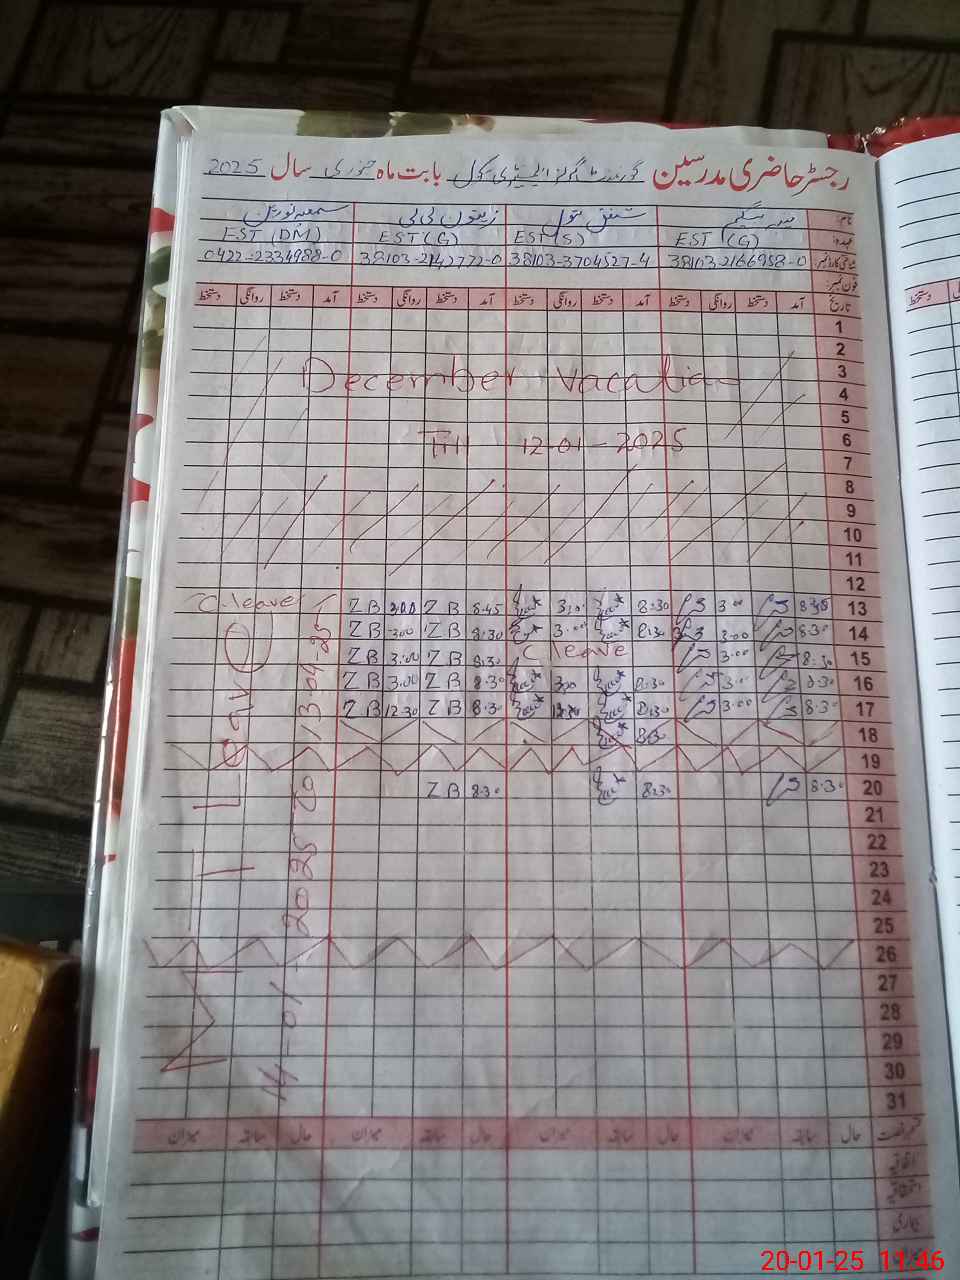 رجسٹر حاضری مدرسین گورنمنٹ گرلز ایلیمنٹری سکول بابت ماہ جنوری سال 2025
نام: بیگم شفق بتول زیتون بی بی سمعیہ نورین
عہدہ: EST (G) EST (S) EST (G) EST (DM)
شناختی کارڈ نمبر 38103-2166958-0 38103-3704527-4 38103-2142772-0 0422-2334988-0
فون نمبر:
تاریخ آمد دستخط روانگی دستخط آمد دستخط روانگی دستخط آمد دستخط روانگی دستخط آمد دستخط روانگی دستخط
1
2
3
December vacation
4
5
6
Till 12-01-2025
7
8
9
10
11
12
13 8:45 3:00 8:30 3:00 8.45 Z B 3:00 Z B C-leave
14 8:30 3:00 8:30 3:00 8:30 Z B 3:00 Z B
15 8:30 3:00 C leave 8:30 Z B 3:00 Z B
16 8:30 3:00 8:30 3:00 8:30 Z B 3:00 Z B
17 8:30 3:00 8:30 12:30 8:30 Z B 12:30 Z B
18 8:30
19
20 8:30 8:30 8:30 Z B
21
22
23
24
25
26
27
28
29
30
31
Leave
14-01-2025 to
قسم رخصت حال سابقہ میزان حال سابقہ میزان حال سابقہ میزان حال سابقہ میزان
اتفاقیہ
استحقاقیہ
بیماری
20-01-25 11:46